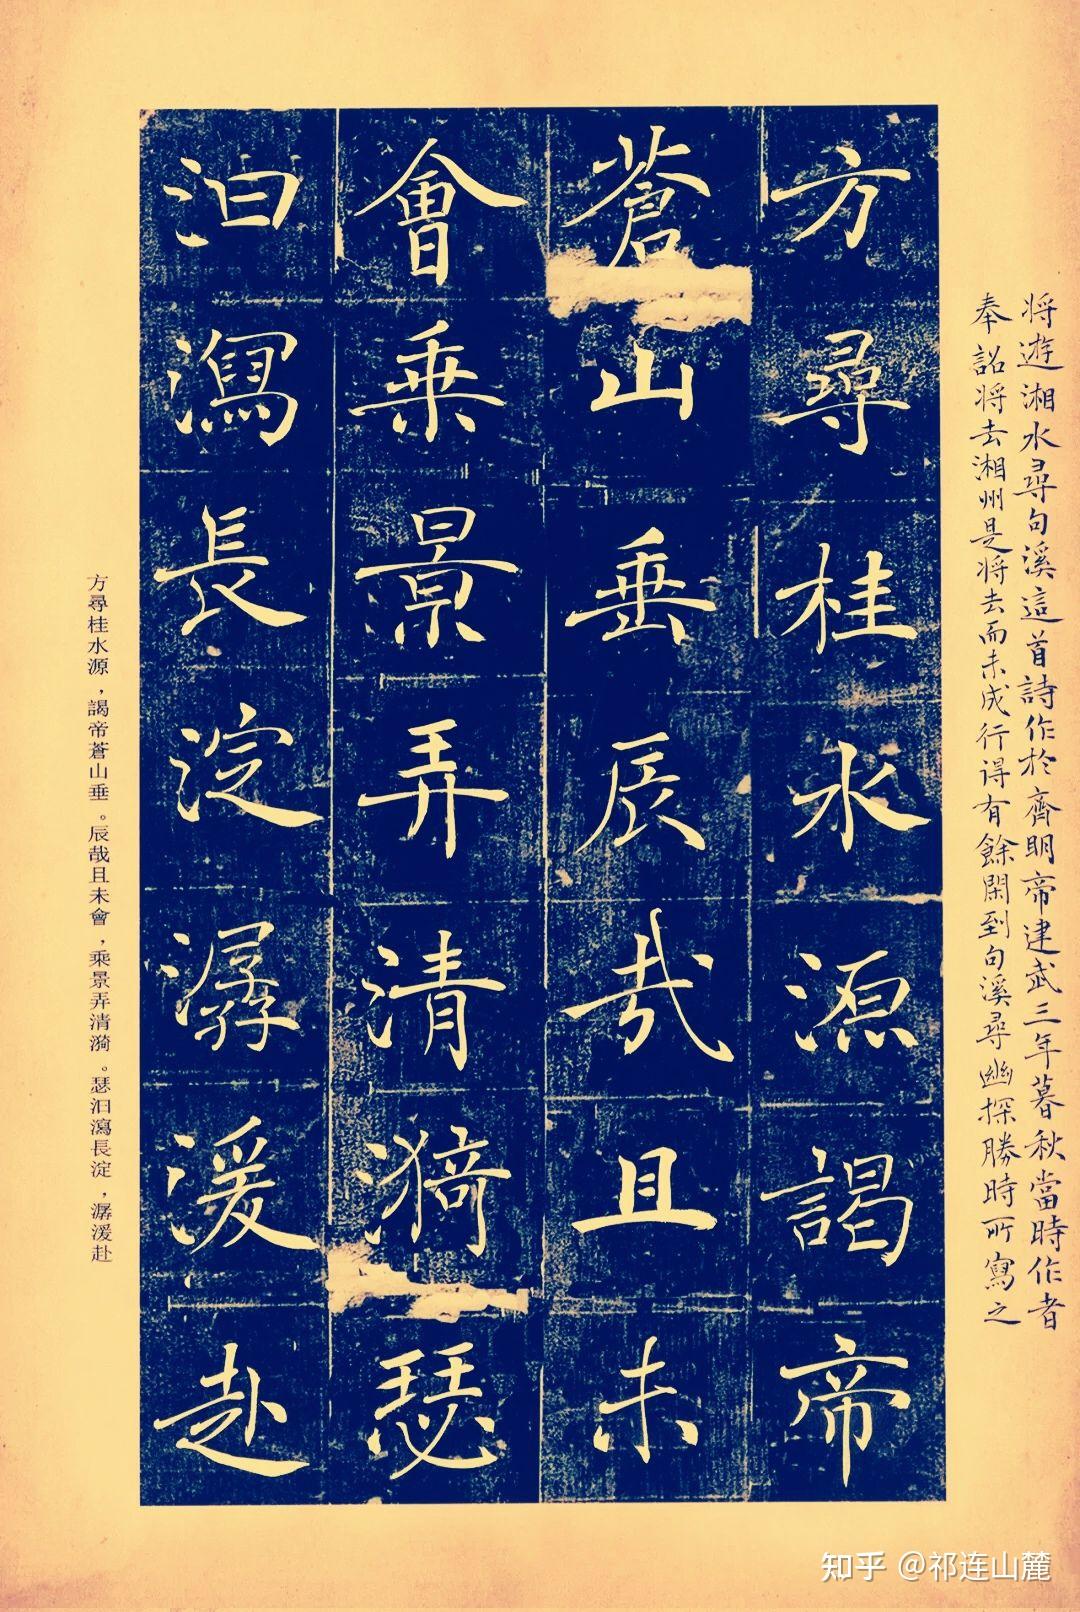 将遊湘水尋句溪這首詩作於齊明帝建武三年暮秋當時作者
奉詔将去湘州是将去而未成行得有餘閑到句溪尋幽探勝時所寫之
方尋桂水源謁帝
蒼山垂辰哉且未
會乗景弄清漪瑟
汩瀉長淀潺湲赴
方尋桂水源，謁帝蒼山垂。辰哉且未會，乘景弄清漪。瑟汩瀉長淀，潺湲赴
知乎 @祁连山麓